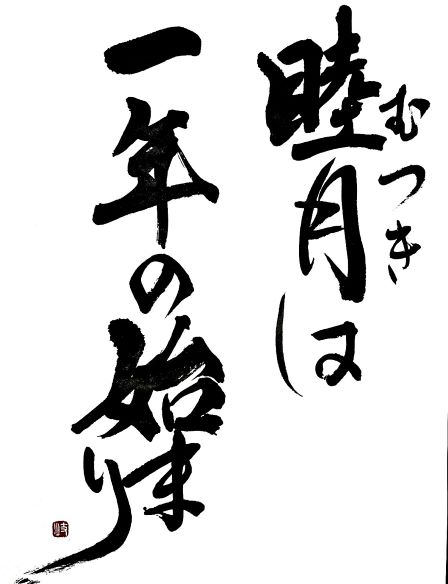 睦月は
むつき
一年の始まり